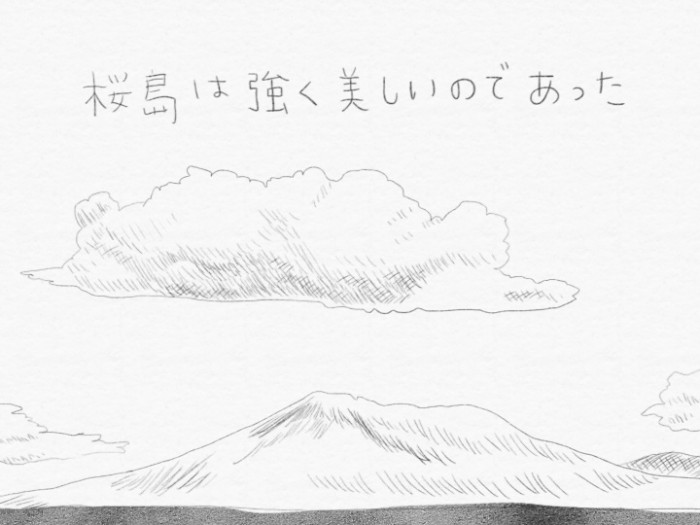 桜島は強く美しいのであった